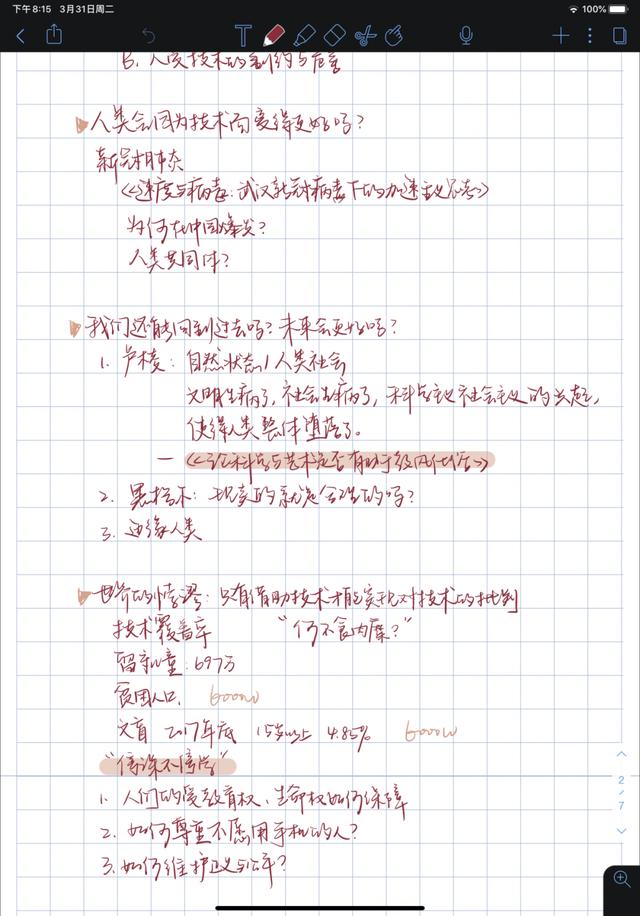 下午8:15 3月31日周二
100%
B. 人受技术的制约与危害
人类会因为技术而变得更好吗?
新冠肺炎
《速度与病毒:武汉新冠病毒下的加速主义思考》
为何在中国爆发?
人类共同体?
我们还能回到过去吗?未来会更好吗?
1. 卢梭:自然状态 / 人类社会
文明生病了,社会生病了,科学主义社会主义的兴起,
使得人类整体堕落了。
— 《论科学与艺术是否有助于敦风化俗》
2. 黑格尔:现实的就是合理的吗?
3. 边缘人类
世界的悖谬:只有借助技术才能实现对技术的批判
技术覆盖率 “何不食肉糜?”
留守儿童:697万
贫困人口、 6000w
文盲 2017年底 15岁以上 4.85% 6000w
“停课不停学”
1. 人们的受教育权、生命权如何保障
2. 如何尊重不愿用手机的人?
3. 如何维护正义与公平?
2
/
7